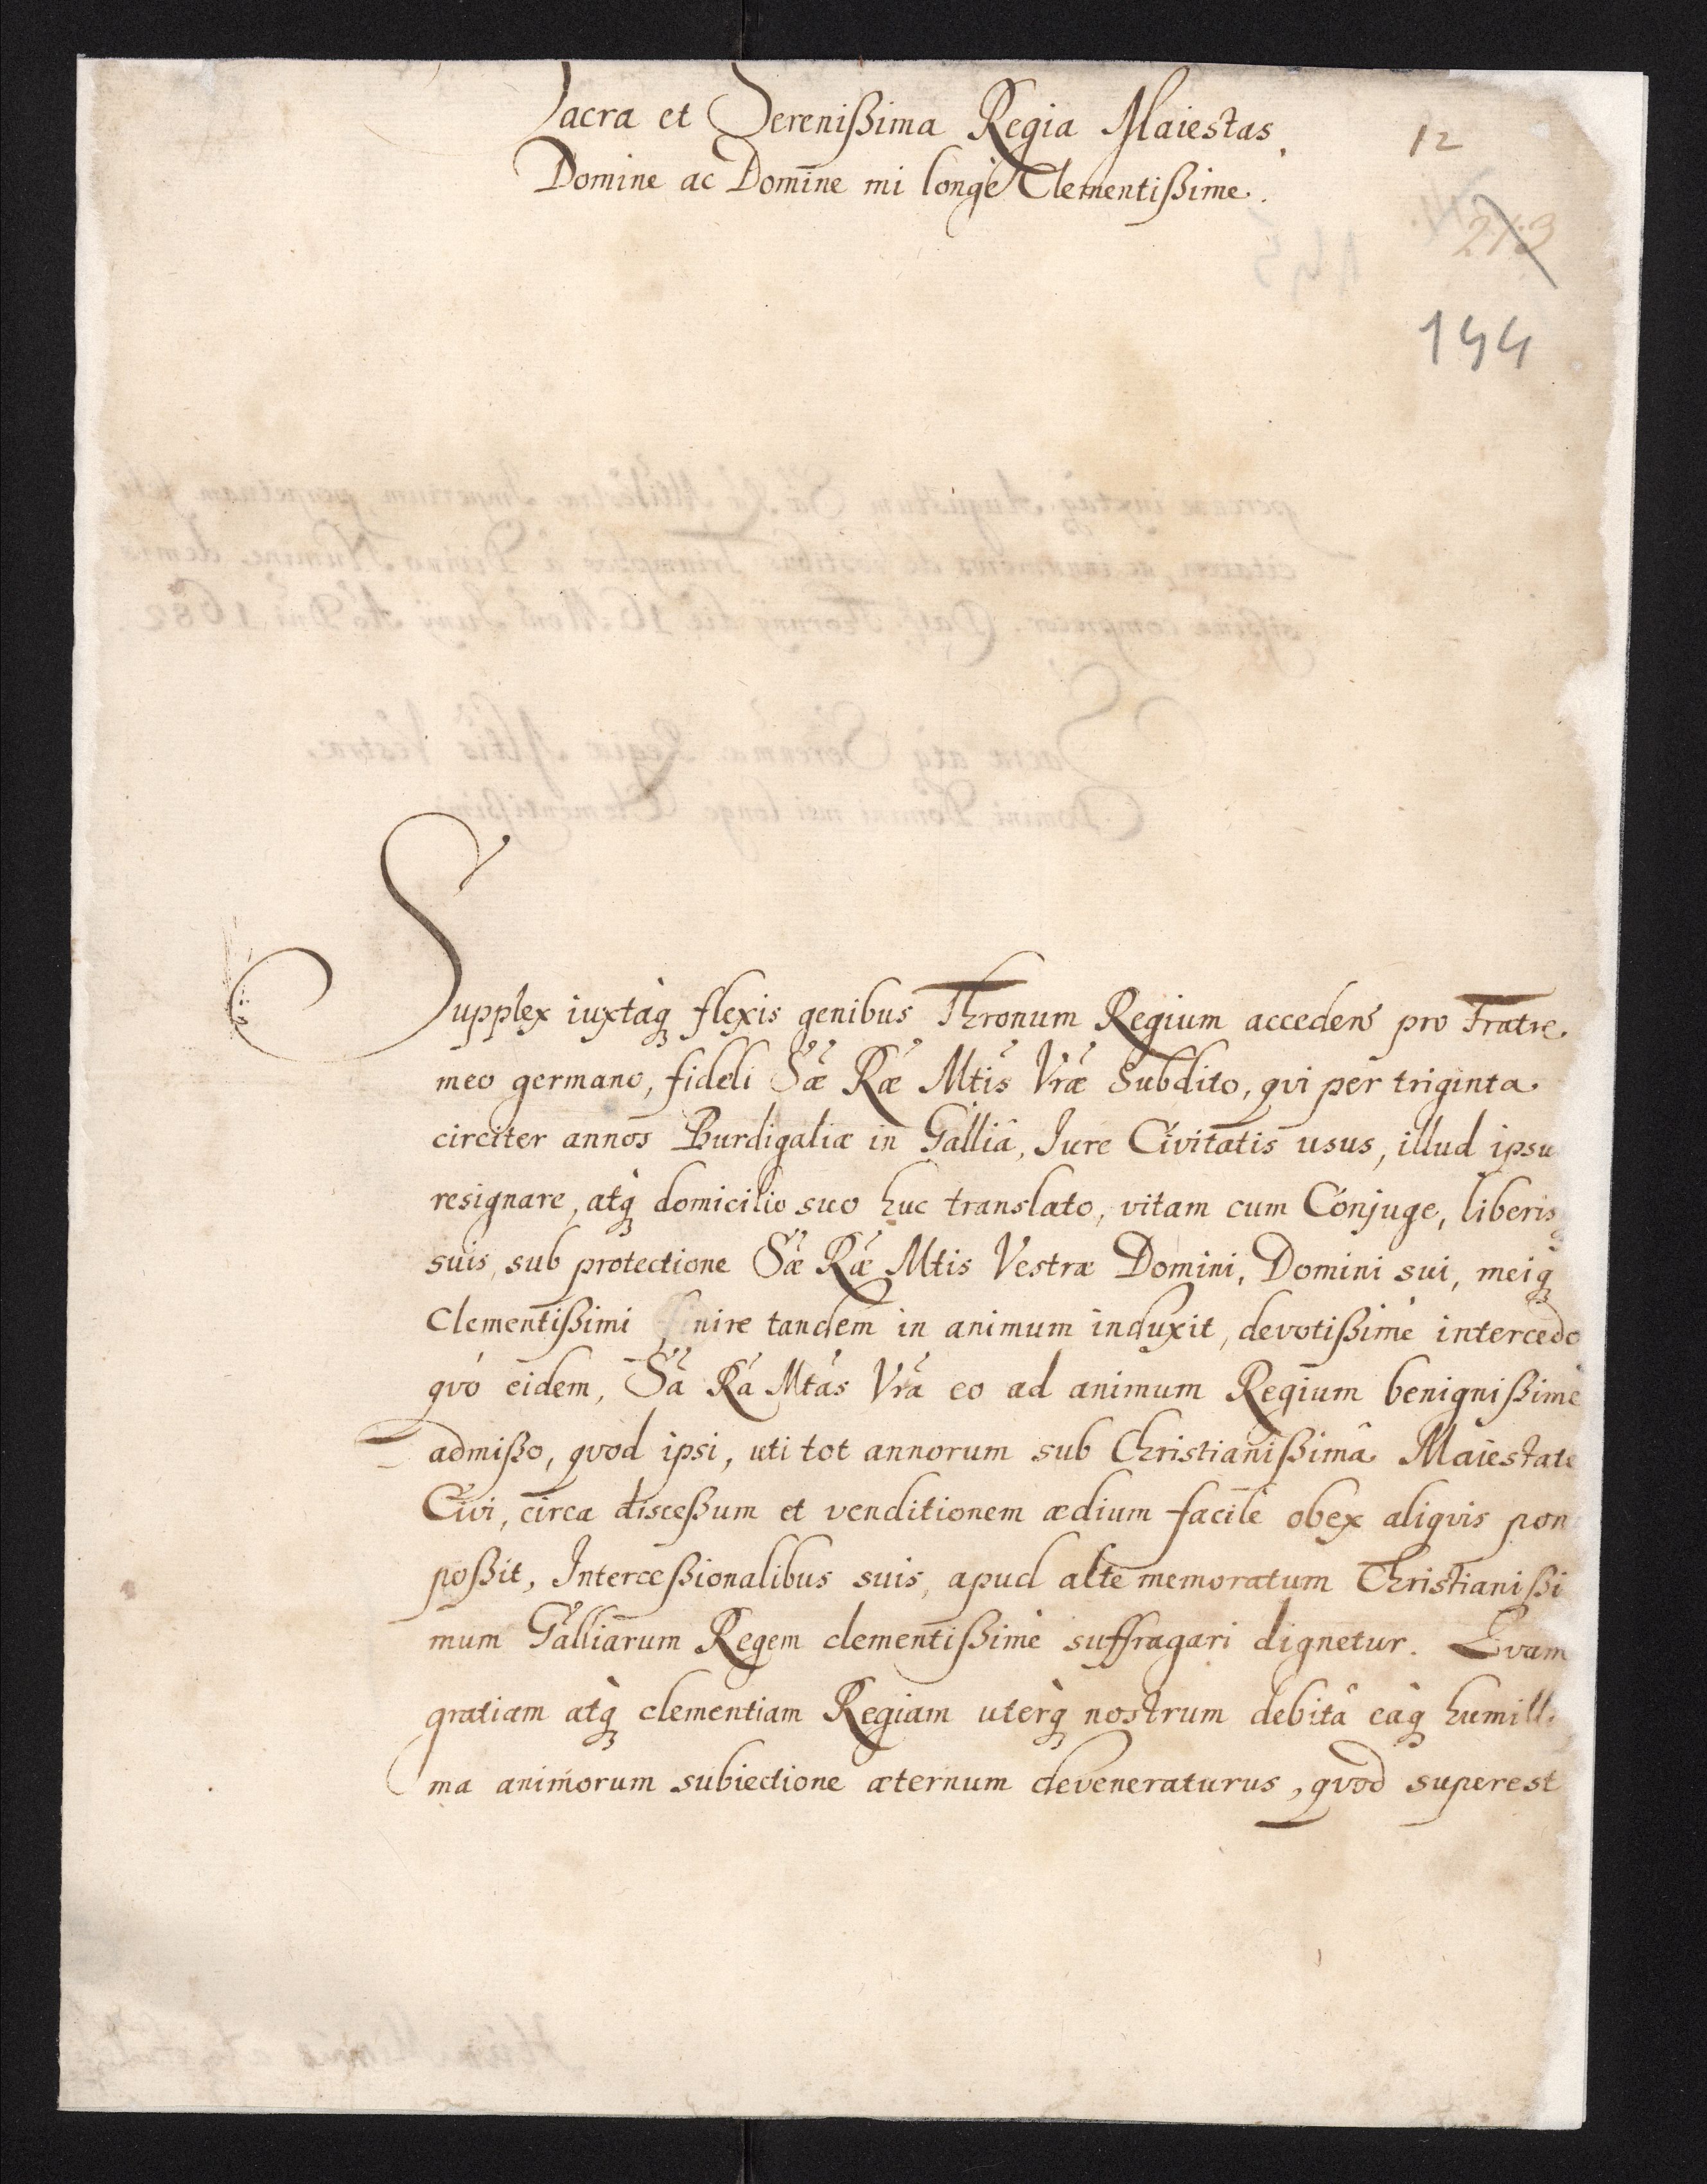 Sacra et Serenißima Regia Maiestas,
Domine ac Domine mi longè Clementißime.
12
213
144
Supplex iuxtaq́ flexis genibus Thronum Regium accedens pro Fratre
meo germano, fideli Sæ Ræ Mtis Vræ Subdito, qvi per triginta
circiter annos Burdigaliæ in Galliâ, Jure Civitatis usus, illud ipsu
resignare, atq́ domicilio suo huc translato, vitam cum Conjuge, liberisq́
suis, sub protectione Sæ Ræ Mtis Vestræ Domini, Domini sui, meiq́
Clementißimi finire tandem in animum induxit, devotißimè intercedo
qvò eidem, Sa Ra Mtas Vra eo ad animum Regium benignißimè
admißo, qvod ipsi, uti tot annorum sub Christianißimâ Maiestate
Civi, circa discessum et venditionem ædium facilè obex aliqvis pon
poßit, Interceßionalibus suis, apud altè memoratum Christianißi
mum Galliarum Regem clementißimè suffragari dignetur. Qvam
gratiam atq́ clementiam Regiam uterq́ nostrum debitâ eâq́ humilli
ma animorum subiectione æternum deveneraturus, qvod superest